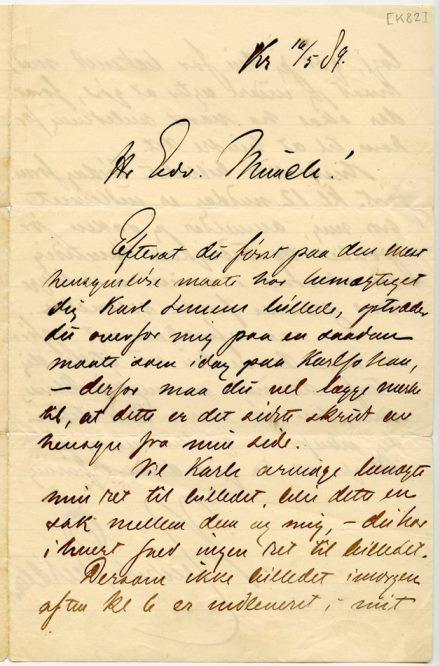 [K82]
Kr 10/5 89.
Hr Edv. Munch!
Efterat du først paa den mest
hensynsløse maate har bemægtiget
dig Karl billede, optræder
du overfor mig paa en saadan
maate som idag paa Karl Johan,
— derfor maa du vel lægge mærke
til, at dette er det sidste skridt av
hensyn fra min side.
Vil Karls benægte
min ret til billedet, blir dette en
sak mellem dem og mig, — du har
i hvert fald ingen ret til billedet.
Dersom ikke billedet imorgen
aften kl 6 er indleveret i mit